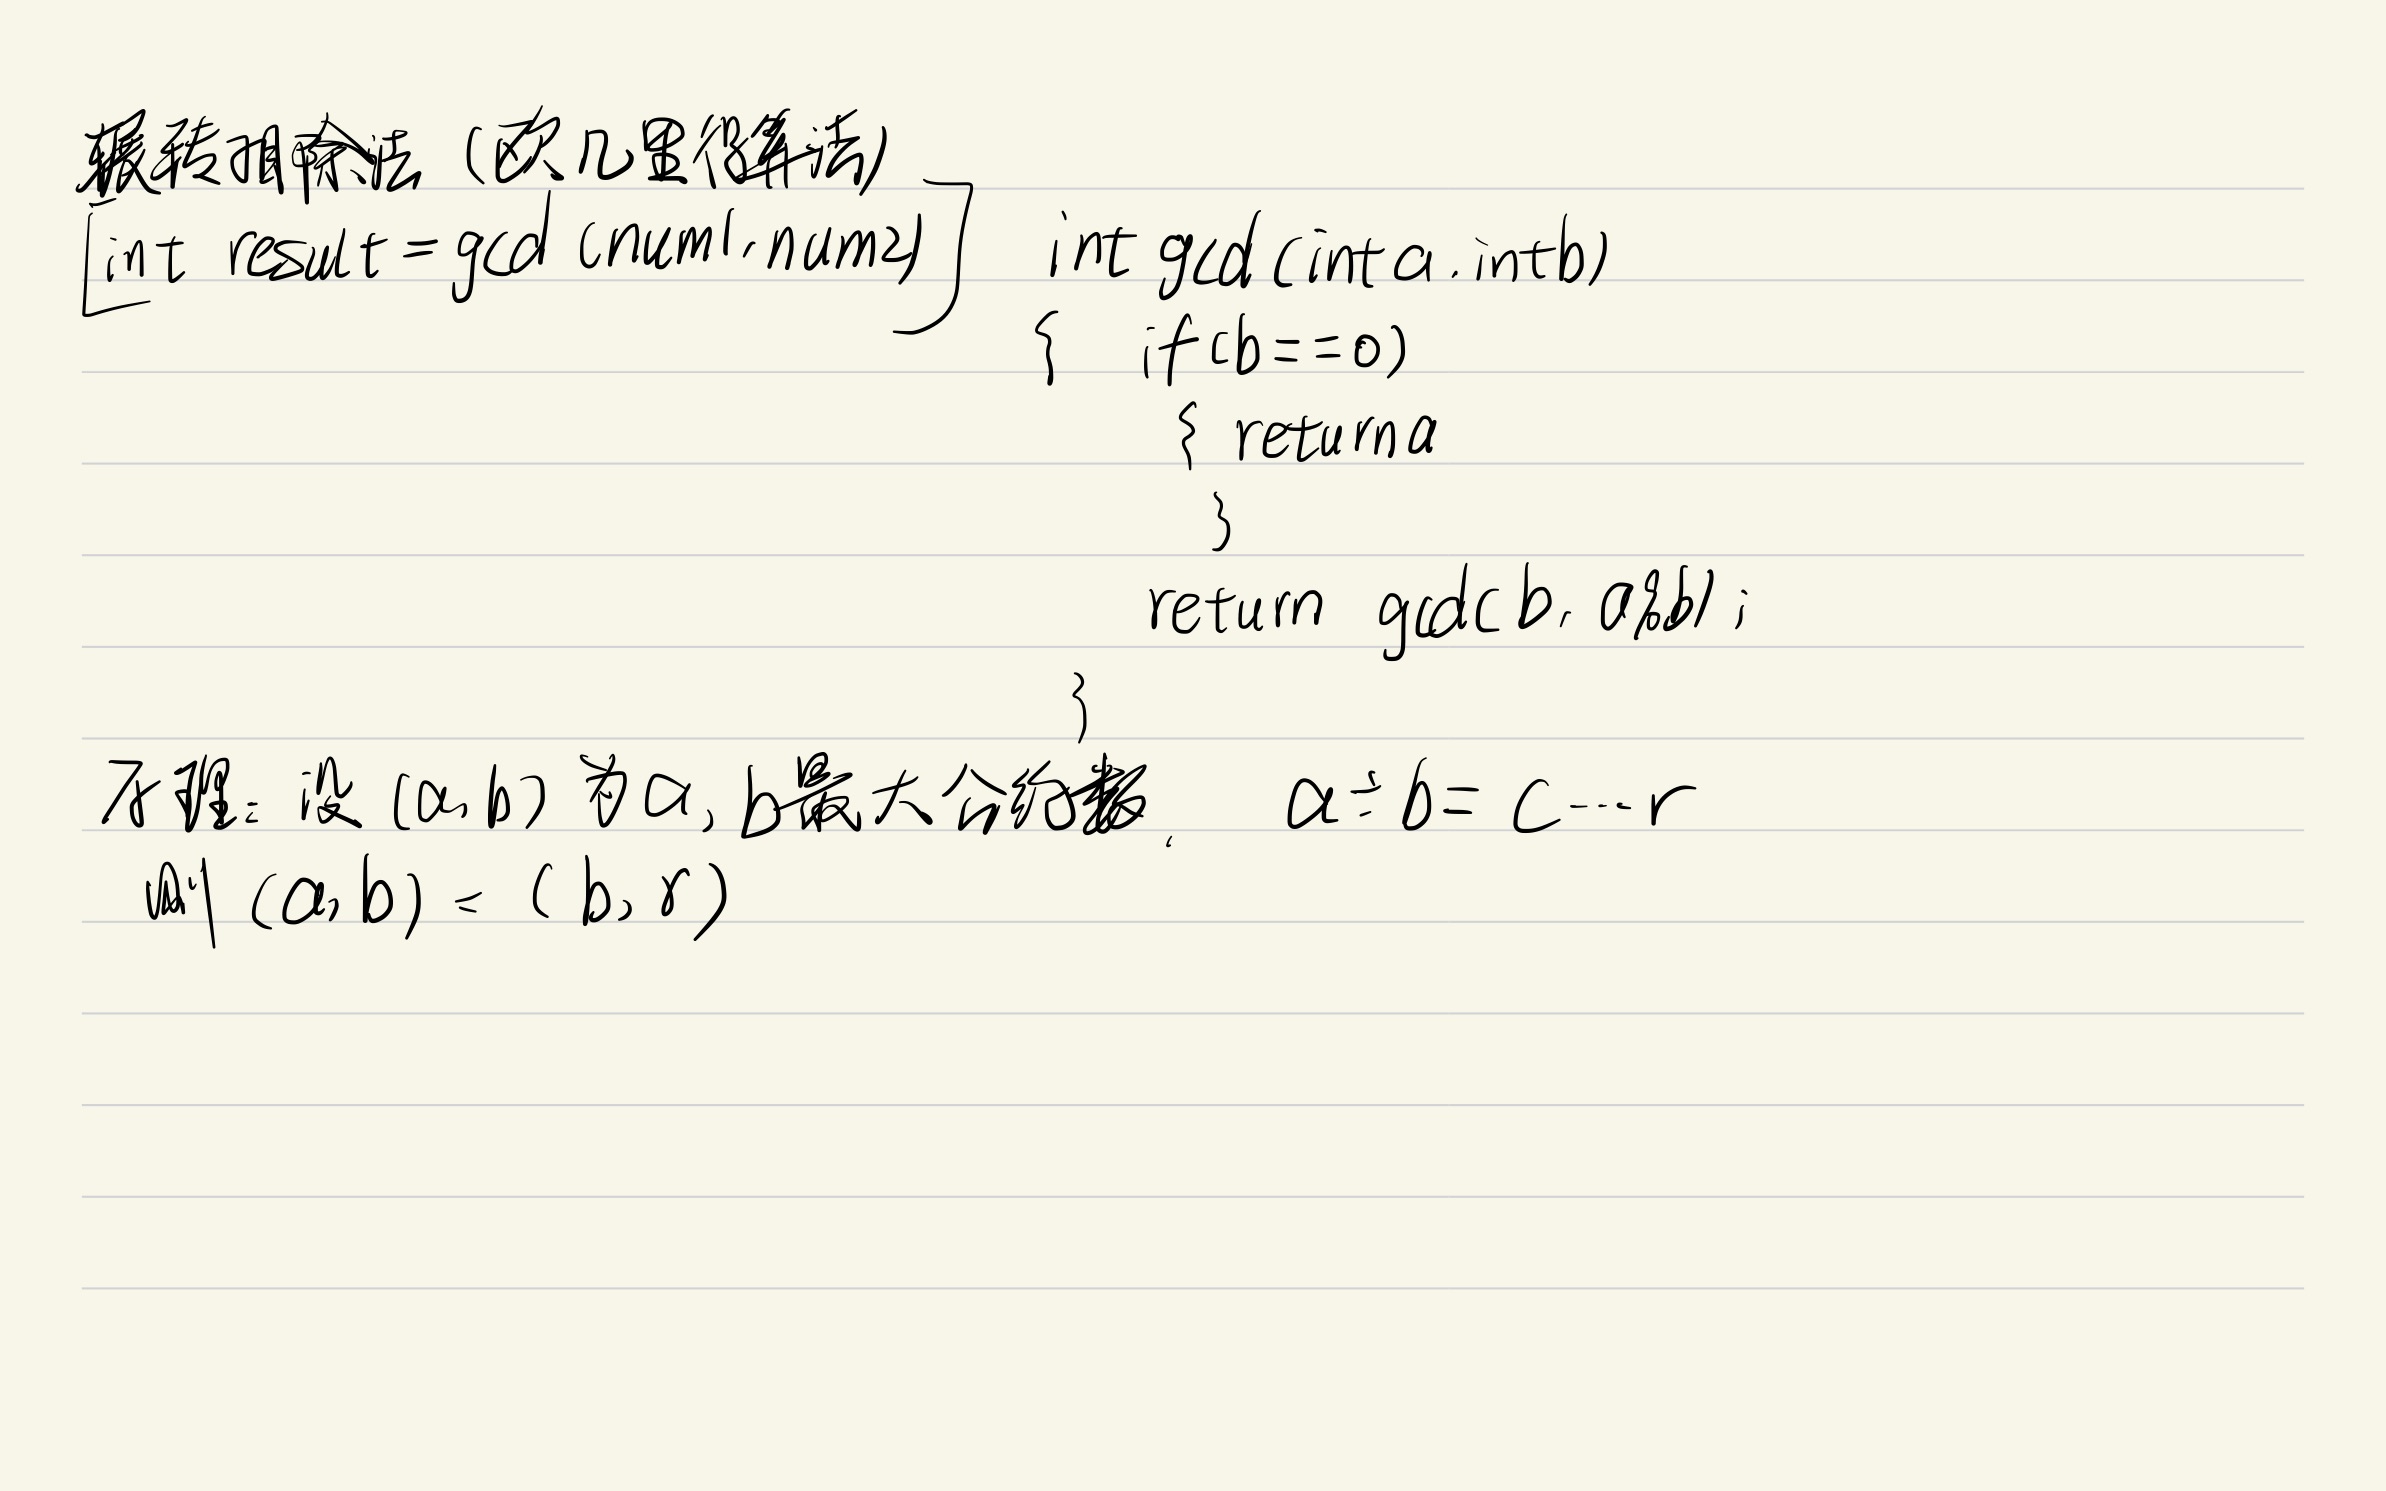 辗转相除法（欧几里得算法）
[int result = gcd (num1, num2)]
int gcd (int a, int b)
{ if (b == 0)
{ return a
}
return gcd (b, a%b);
}
原理：设 (a, b) 为 a, b最大公约数， a÷b= c┄r
则 (a, b) = (b, r)